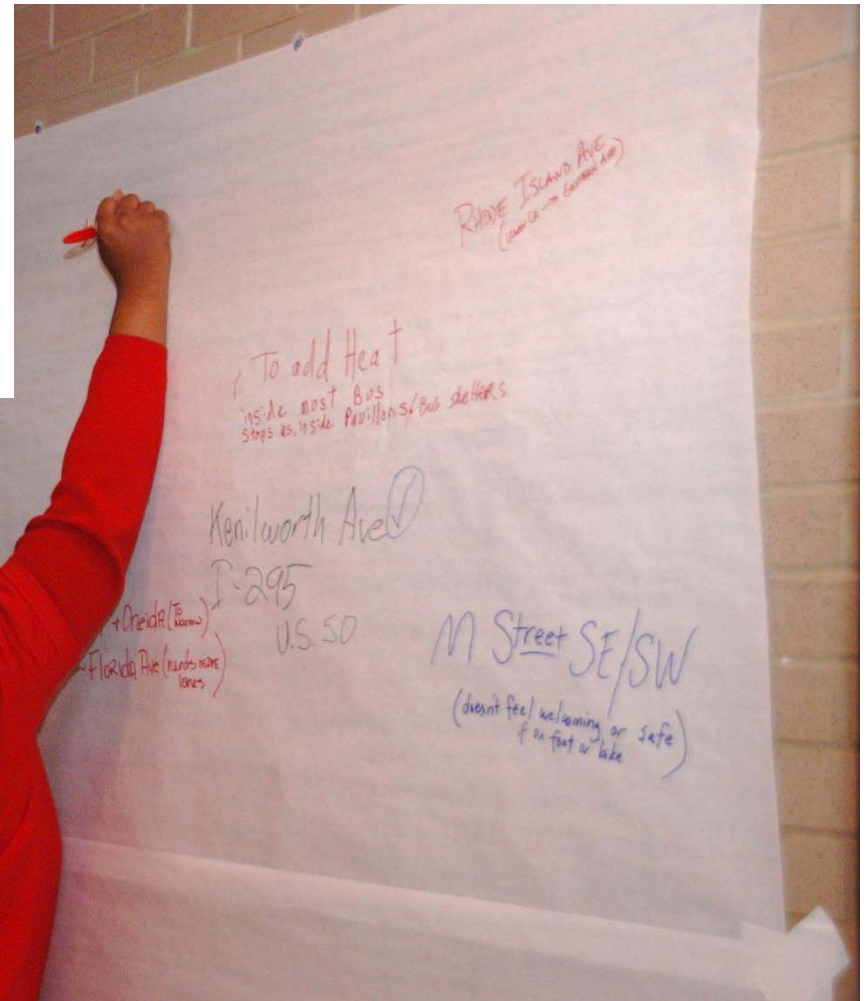 RHODE ISLAND AVE
To add Heat
inside most Bus
Stops as, inside Pavillons/Bus shelters
Kenilworth Ave ✓
I-295
U.S. 50
+ Oneida (To Narrow)
Florida Ave (needs more
lanes)
M Street SE/SW
(doesn't feel welcoming or safe
if on foot or bike)